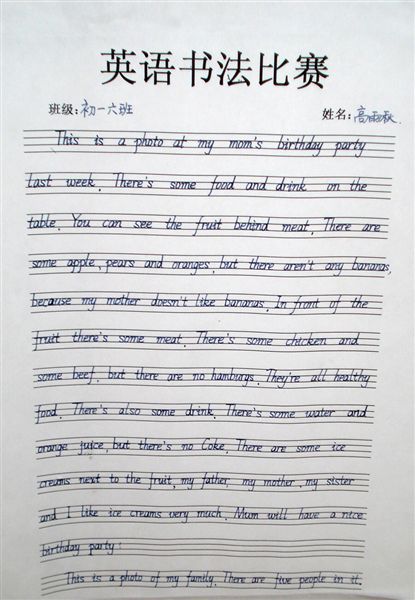 英语书法比赛
班级:初一六班 姓名:高雨秋
This is a photo at my mom's birthday party
last week. There's some food and drink on the
table. You can see the fruit behind meat. There are
some apple, pears and oranges, but there aren't any bananas,
because my mother doesn't like bananas. In front of the
fruit there's some meat. There's some chicken and
some beef, but there are no hamburgs. They're all healthy
food. There's also some drink. There's some water and
orange juice, but there's no Coke. There are some ice
creams next to the fruit, my father, my mother, my sister
and I like ice creams very much. Mum will have a nice
birthday party!
This is a photo of my family. There are five people in it.